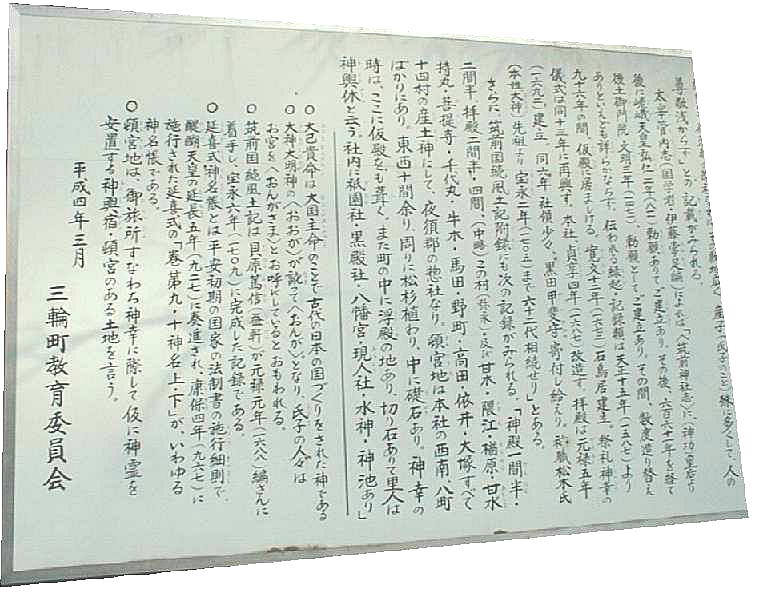 産子(氏子のこと)殊に多くして、人の
尊敬浅からず」との記載がみられる。
太宰管内志(国学者・伊藤常足編)によれば、「筑前神社志に、神功皇后より
後に嵯峨天皇弘仁二年(八一一)勅願ありてご建立あり。その後、六百六十一年を経て
後土御門院、文明三年(一四七一)、勅願としてご建立あり。その間、数度造り替え
ありといえども詳らかならず。伝わる縁起・記録類は天正十五年(一五八七)より
九十六年の間、仮殿に居まします。寛文十二年(一六七二)石鳥居建主。祭礼神幸の
儀式は同十三年に再興す。本社、貞享四年(一六八七)改造す。拝殿は元禄五年
(一六九二)建立、同六年社領少々、黒田甲斐守寄付し給えり。祠職松木氏
(本姓大神)先祖より宝永二年(一七〇五)まで六十二代相続せり」とある。
さらに、筑前国続風土記附録にも次の記録がみられる。「神殿一間半・
二間半、拝殿二間半・四間、(中略)この村(弥永)及び甘水・隈江・楢原・甘水
持丸・菩提寺・千代丸・牛木・馬田・野町・高田・依井・大塚すべて
十四村の産土神にして、夜須郡の惣社なり。頓宮地は本社の西南、八町
ばかりにあり。東西十間余り、周りに松杉植わり、中に礎石あり。神幸の
時は、ここに仮殿をも葺く。また町の中に浮殿の地あり。切り石ありて里人は
神輿休と云う。社内に祇園社・黒殿社・八幡宮・現人社・水神・神池あり」
○ 大己貴命は大国主命のことで古代の日本の国づくりをされた神である
○ 大神大明神の〈おおが〉が訛て〈おんが〉となり、氏子の人々は
お宮を〈おんがさま〉とお呼びしているとおもわれる。
○ 筑前国続風土記は貝原篤信(益軒)が元禄元年(一六八八)編さんに
着手し、宝永六年(一七〇九)に完成した記録である。
○ 延喜式神名帳とは平安初期の国家の法制書の施行細則で、
醍醐天皇の延長五年(九二七)に奏進され、康保四年(九六七)に
施行された延喜式の「巻第九・十神名上・下」が、いわゆる
神名帳である。
○ 頓宮地は、御旅所すなわち神幸に際して仮に神霊を
安置する神輿宿・頓宮のある土地を言う。
平成四年三月
三輪町教育委員会